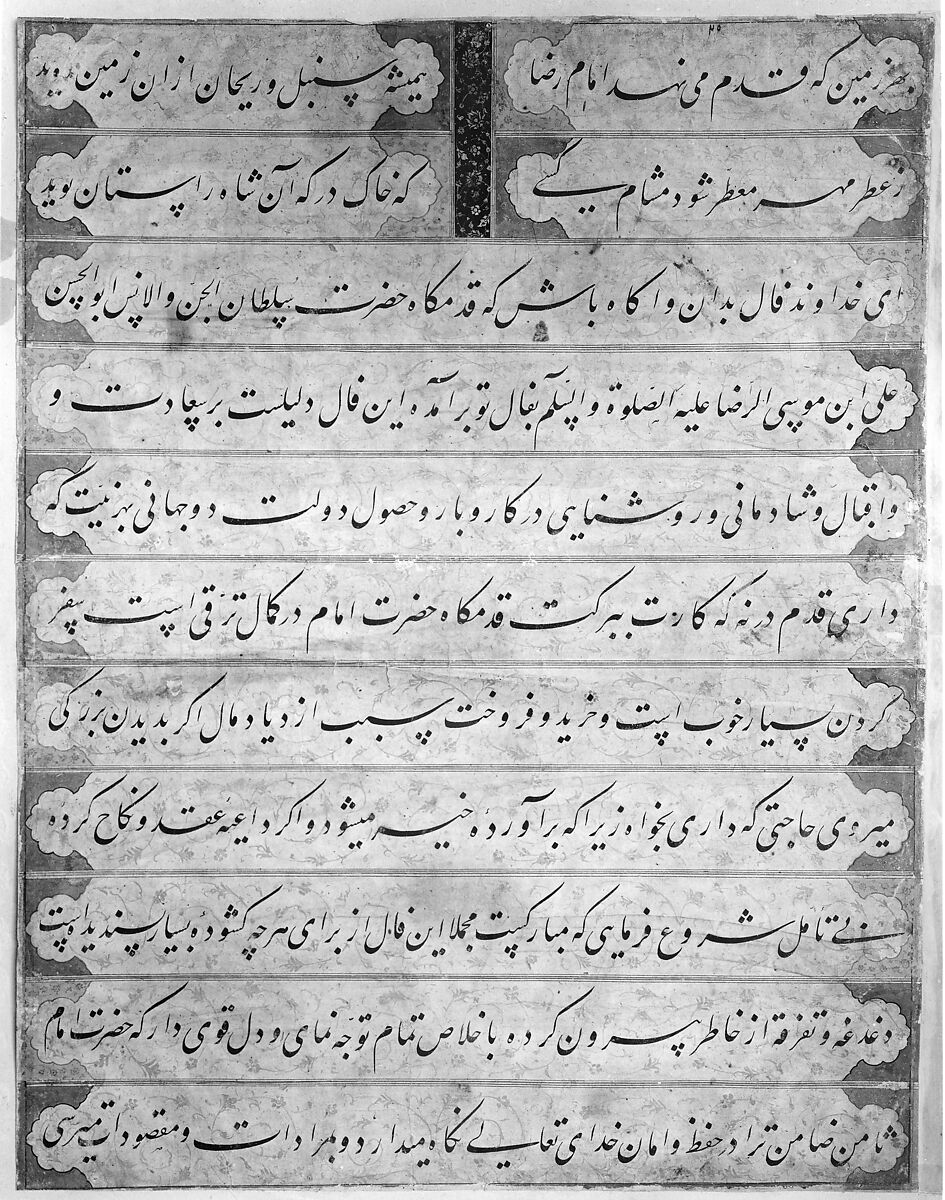 بهر زمین که قدم می نهد امام رضا
همیشه سنبل و ریحان ازان زمین روید
ز عطر مهر معطر شود مشام کسی
که خاک درکه آن شاه راستان بوید
ای خداوند فال بدان و اکاه باش که قدمکاه حضرت سلطان الجن والانس ابوالحسن
علی ابن موسی الرضا علیه الصلوة والسلم بفال تو برآمده این فال دلیلست بر سعادت و
و اقبال و شادمانی و روشنایی در کار و بار و حصول دولت دوجهانی بهر نیت که
داری قدم در نه که کارت ببرکت قدمکاه حضرت امام در کمال ترقی است سفر
کردن بسیار خوب است و خرید و فروخت سبب ازدیاد مال اکر بدیدن بزرکی
میروی حاجتی که داری بخواه زیرا که برآورده خیر میشود و اکر داعیه عقد و نکاح کرده
بی تأمل شروع فرمایی که مبارکست مجملا این فال از برای هرچه کشوده بسیار پسندیده است
دغدغه و تفرقه از خاطر بیرون کرده باخلاص تمام توجه نمای و دل قوی دار که حضرت امام
ثامن ضامن ترا در حفظ و امان خدای تعالی نکاه میدارد و بمرادات و مقصودات میرسی